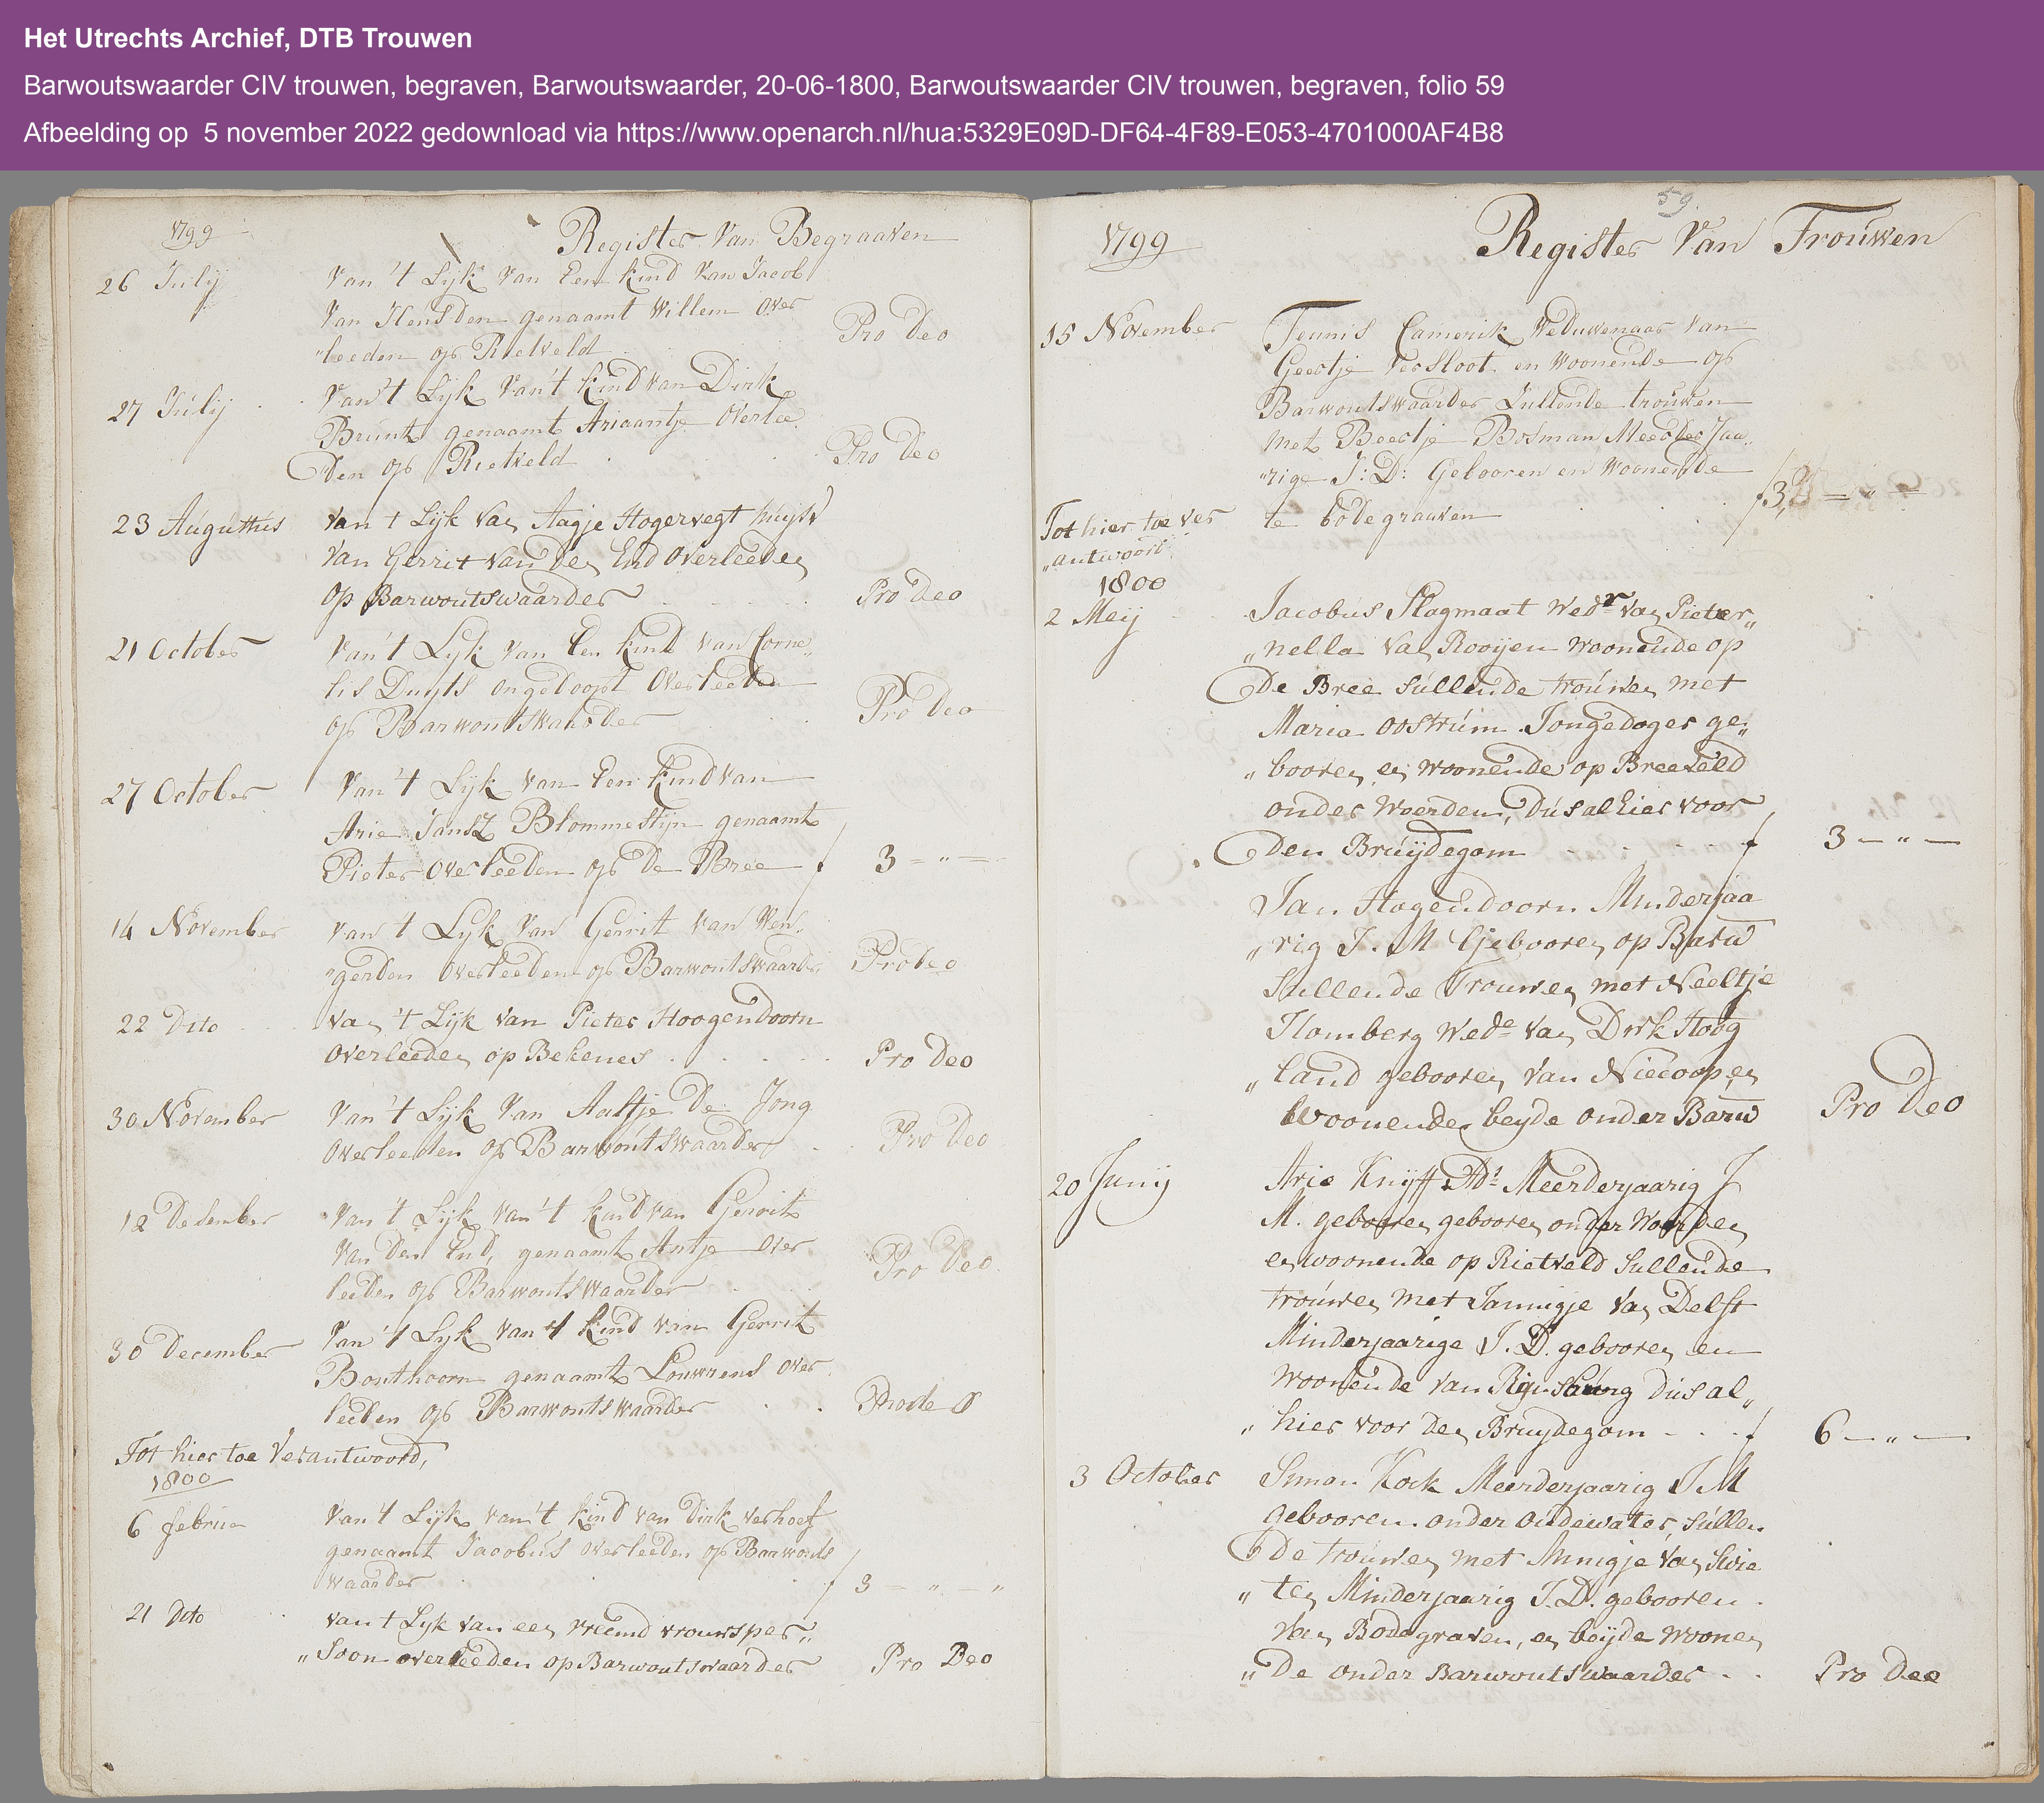 Het Utrechts Archief, DTB Trouwen
Barwoutswaarder CIV trouwen, begraven, Barwoutswaarder, 20-06-1800, Barwoutswaarder CIV trouwen, begraven, folio 59
Afbeelding op 5 november 2022 gedownload via https://www.openarch.nl/hua:5329E09D-DF64-4F89-E053-4701000AF4B8
1799
Register Van Begraaven
26 Julij
Van 't Lijk Van Een kind Van Jacob
Van Heusden genaamt Willem Over
"leeden op Rietveld
Pro Deo
27 Julij
Van 't Lijk Van't kind van Dirk
Brunt genaamt Ariaantje Overlee
Den op Rietveld
Pro Deo
23 Augustus
Van t Lijk Van Aagje Hogervegt huijsv
Van Gerrit Van den End Overleeden
op Barwoutswaarder
Pro Deo
21 October
Van 't Lijk Van Een kind Van Corne„
lis Duyts ongedoopt Overleeden
op Barwoutswaarder
Pro Deo
27 October
Van 't Lijk van Een kind van
Arie Jansz Blommestijn genaamt
Pieter Overleeden op De Bree f 3 = " =
14 November
Van 't Lijk Van Gerrit Van Wen„
"gerden Overleeden op Barwoutswaarder
Pro Deo
22 Dito
Van 't Lijk van Pieter Hoogendoorn
Overleeden op Bekenes
Pro Deo
30 November
Van 't Lijk Van Aaltje De Jong
Overleeden op Barwoutswaarder
Pro Deo
12 December
Van 't Lijk van 't kind van Gerrit
Van Den End, genaamt Antje Over
leeden op Barwoutswaarder
Pro Deo
30 December
Van 't Lijk van 't kind van Gerrit
Bonthoorn genaamt Louwrens Over
leeden op Barwoutswaarder
Prodeo
Tot hier toe Verantwoord,
1800
6 februa
Van 't Lijk van 't kind van Dirk Verhoef
genaamt Jacobus Overleeden op Barwouts
waarder f 3 = " = "
21 Dito
van t Lijk van een vreemd vrouwsper„
„soon overleeden op Barwoutswaarder
Pro Deo
59.
1799
Register Van Trouwen
15 November
Teunis Camerik Weduwenaar Van
Geertje Versloot en Woonende op
Barwoutswaarder Zullende trouwen
met Beertje Bosman Meerder Jaa„
"rige J: D: Gebooren en Woonende
te bodegraaven f 3
Tot hier toe ver
„antwoord
1800
2 Meij
Jacobus Plagmaat Wedr Van Pieter„
„nella Van Rooijen woonende op
De Bree sullende trouwen met
Maria Oostrum Jongedogter ge„
„booren en woonende op Breeveld
onder Woerden, Dus alhier voor
Den Bruijdegom f 3 — " —
Jan Hogendoorn Minderjaa
„rig J. M Gebooren op Barw
Sullende Trouwen met Neeltje
Homberg Wede Van Dirk Hoog
„land gebooren Van Niecoop en
Woonende beyde onder Barw
Pro Deo
20 Junij
Arie Knijff Ads Meerderjaarig J
M. gebooren gebooren onder Woerden
en woonende op Rietveld Sullende
trouwen met Jannigje Van Delft
Minderjaarige J. D. gebooren en
Woonende Van Dus al„
„hier voor den Bruydegom f 6 — " —
3 October
Simon Kock Meerderjaarig J M
gebooren onder Oudewater, Sullen
De trouwen met Annigje Van Swie
„ten Minderjaarig J. D. gebooren
Van Bodegraven, en beijde woonen
„De onder Barwoutswaarder
Pro Deo